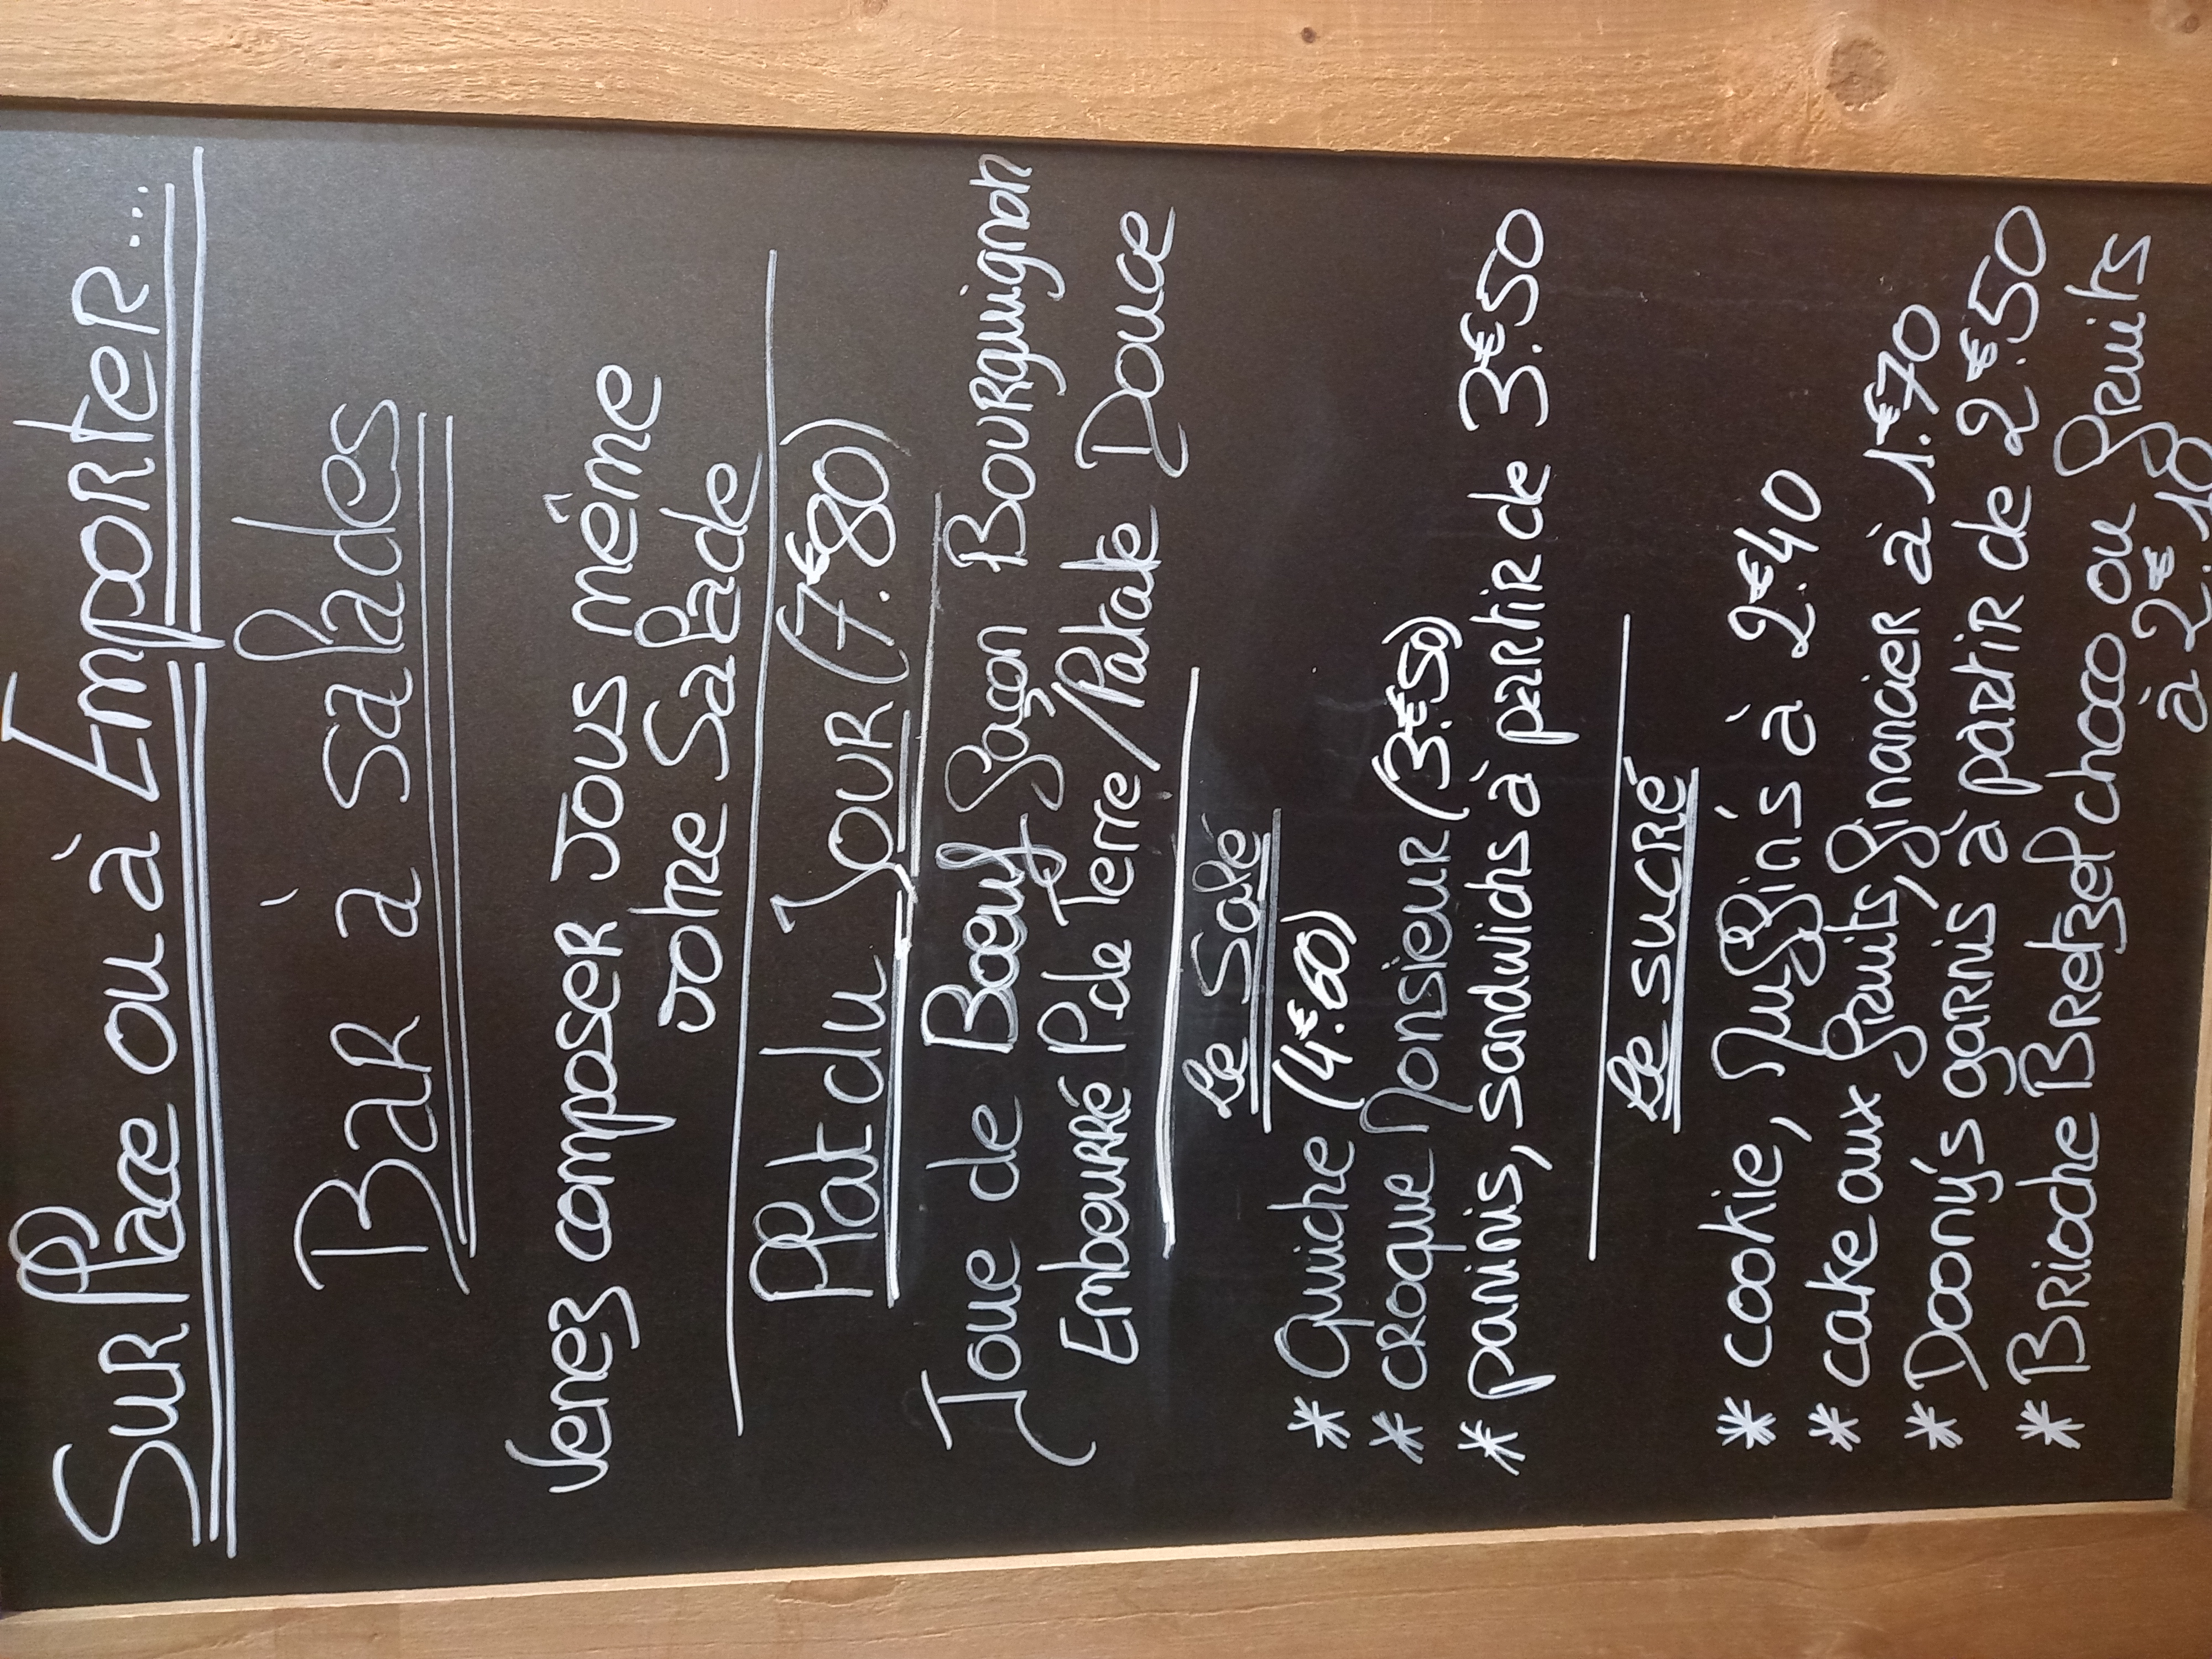 Sur Place ou à Emporter...
Bar à salades
Venez composer vous même
votre Salade
Plat du Jour (7.€80)
Joue de Bœuf façon Bourguignon
Embourré P. de Terre/Patate Douce
Le Salé
* Quiche (4.€60)
* croque Monsieur (3.€50)
* paninis, sandwichs à partir de 3.€50
Le sucré
* cookie, Muffins à 2.€40
* cake aux fruits, financier à 1.€70
* Doony's garnis à partir de 2.€50
* Brioche Bretzel choco ou fruits
à 2.€10